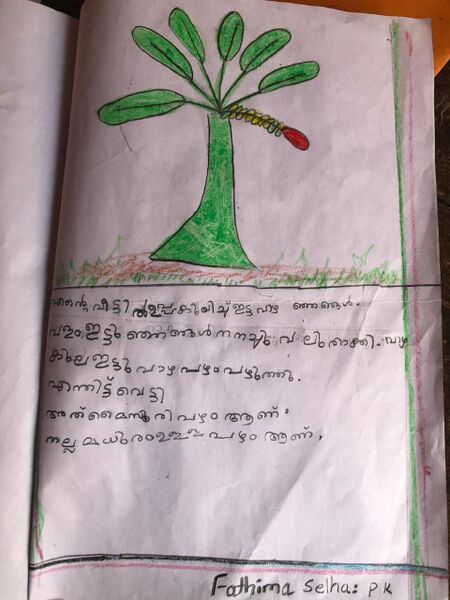 എന്റെ വീട്ടി ഉപ്പകിയിച് ഇട്ട വാഴ ഞങ്ങൾ.
വളം ഇട്ടു ഞങ്ങൾ നനച്ചു വലിതാക്കി. വാഴ
കുല ഇട്ടു വാഴ പഴം പഴുത്തു.
എന്നിട്ട് വെട്ടി
അത് മൈസൂരി പഴം ആണ്
നല്ല മധുരം ഉള്ള പഴം ആണ്.
Fathima Selha: P K